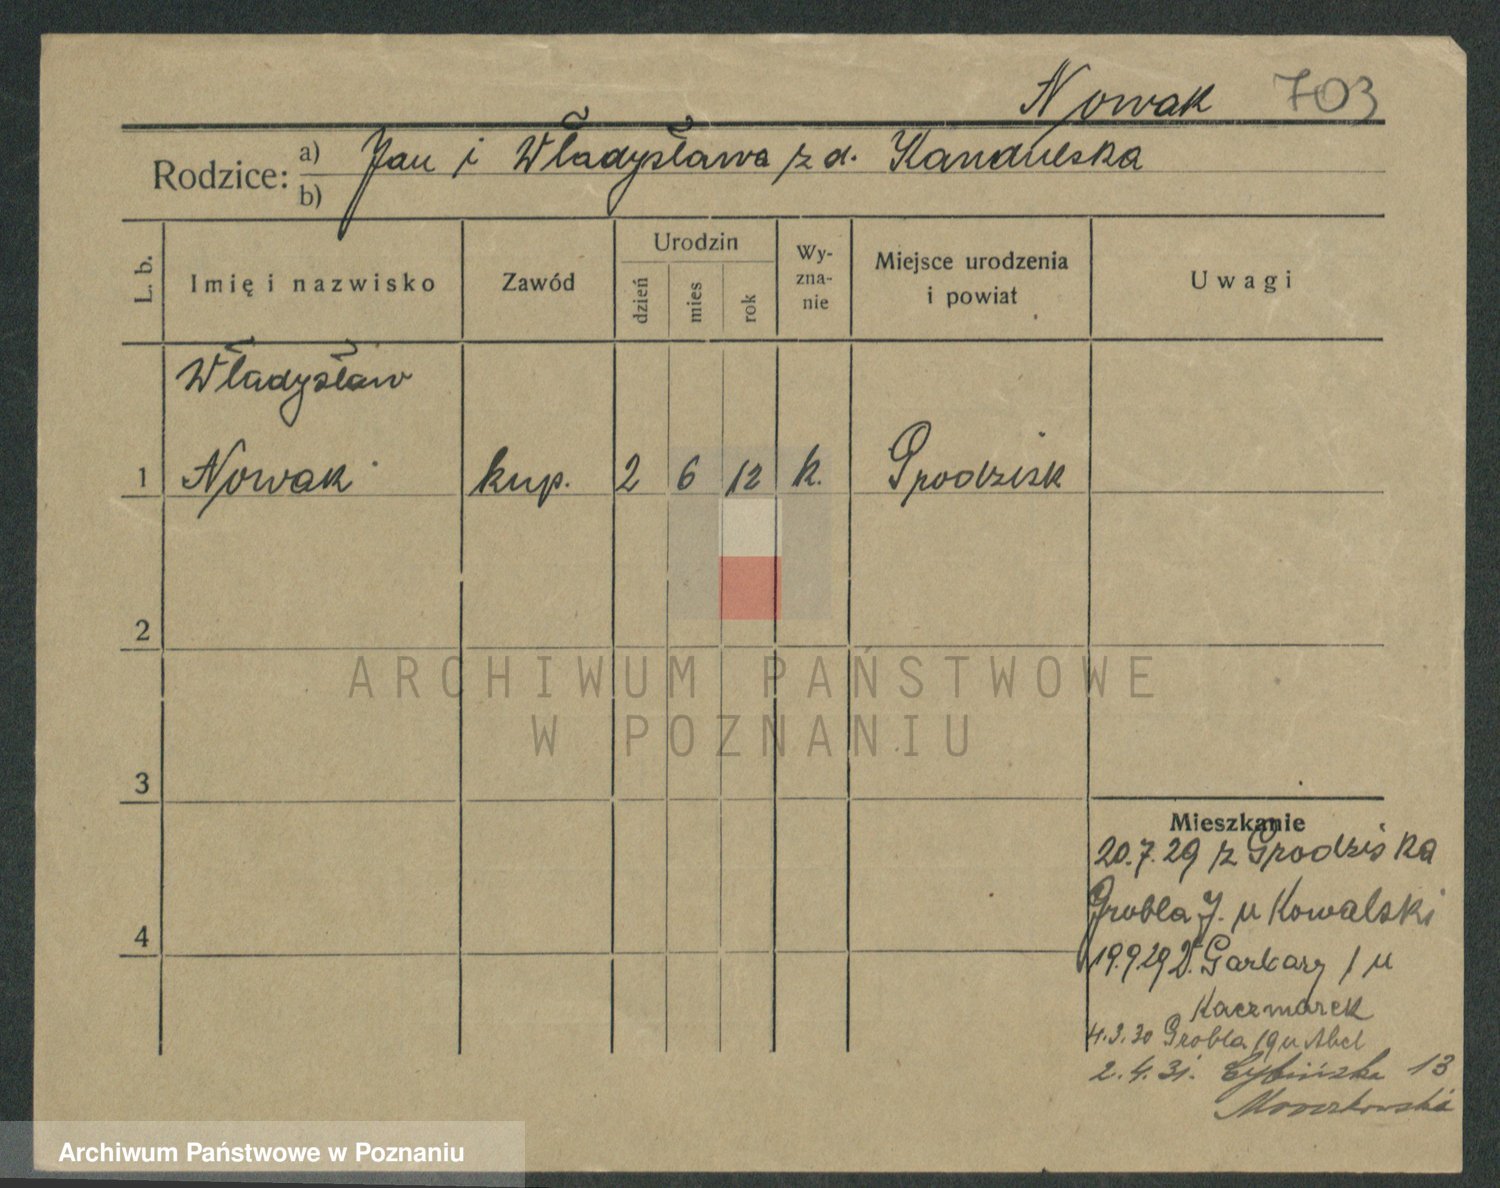 Nowak 703
Rodzice: a) Jan i Władysława z d. Kandulska
b)
L. b. Imię i nazwisko Zawód Urodzin dzień mies rok Wyznanie Miejsce urodzenia i powiat Uwagi
Władysław
1 Nowak kup. 2 6 12 k. Grodzisk
2
ARCHIWUM PAŃSTWOWE
W POZNANIU
3
Mieszkanie
20.7.29 z Grodziska
Grobla 7. u Kowalski
4
19.9.29 D. Garbary 1 u
Kaczmarek
4.3.30 Grobla 19 u Abel
2.4.31. Cybińska 13
Archiwum Państwowe w Poznaniu